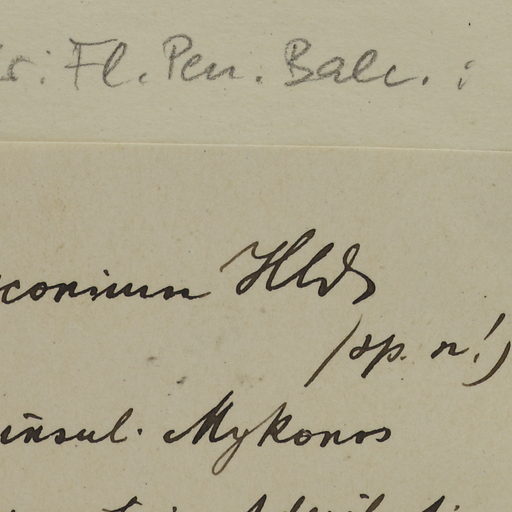 Fl. Pen. Balc. :
conium Hld
(sp. n!)
insul. Mykonos